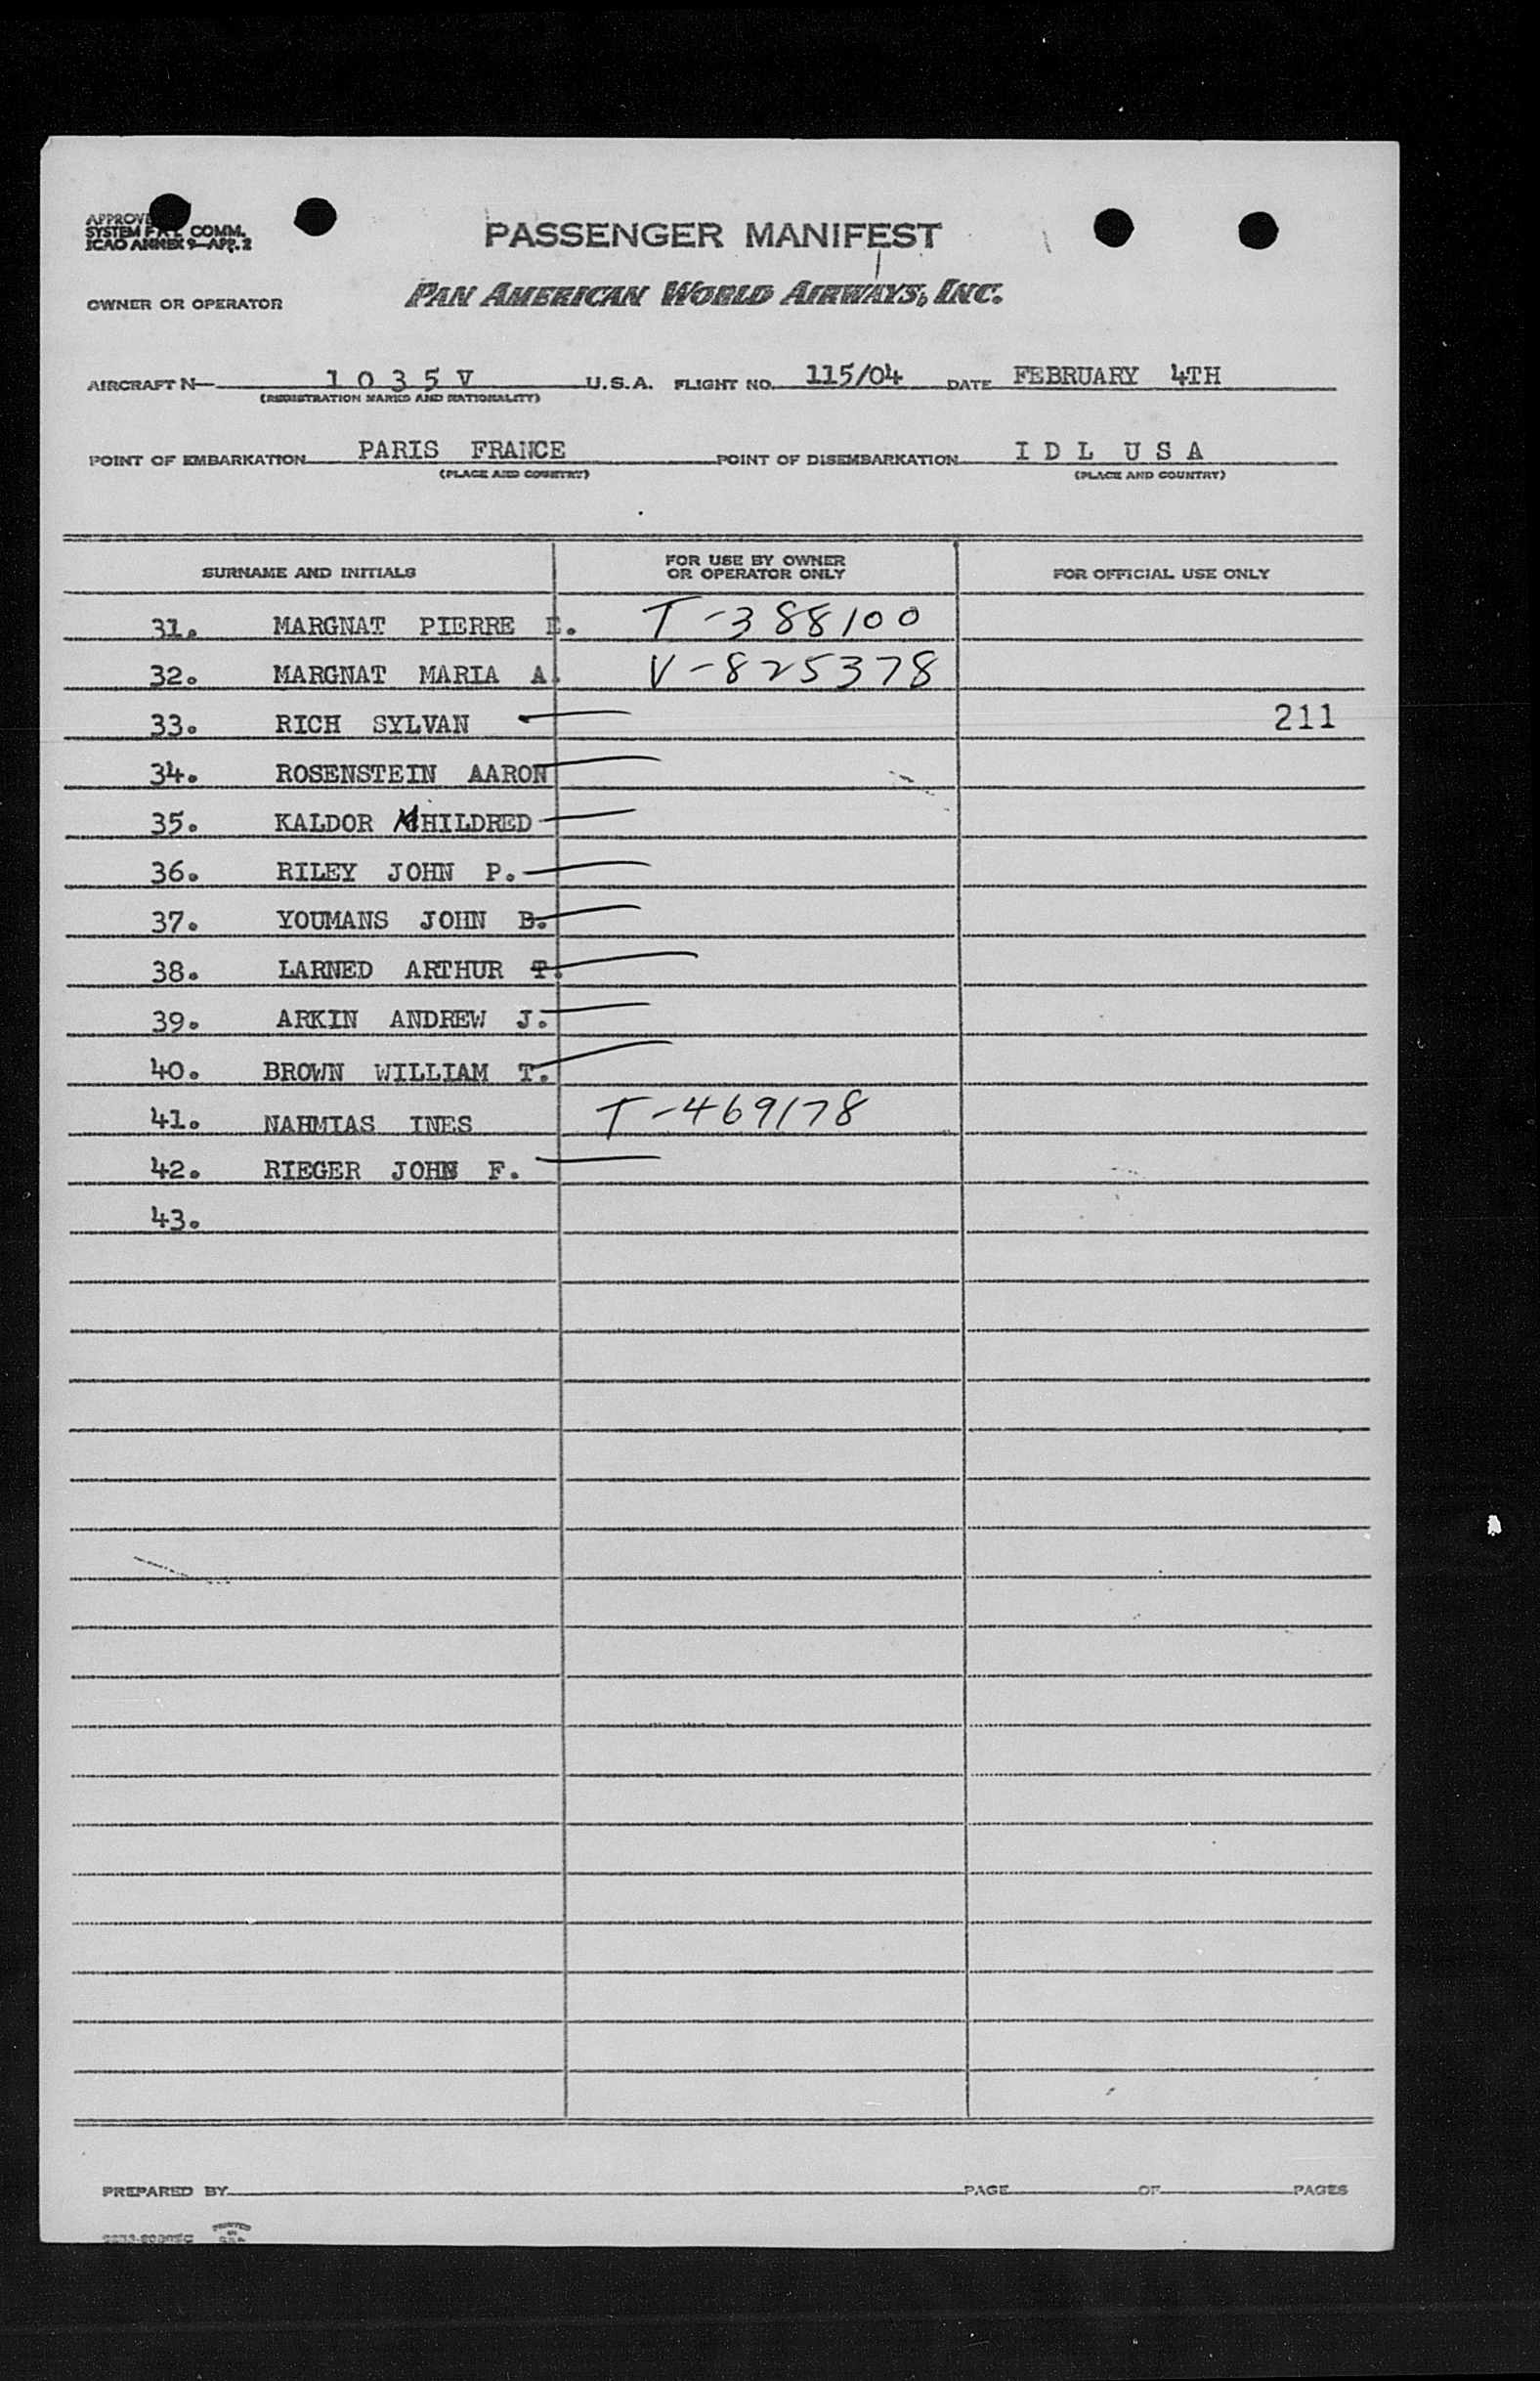 APPROVED
SYSTEM FAL COMM.
ICAO ANNEX 9-APP. 2
PASSENGER MANIFEST
OWNER OR OPERATOR PAN AMERICAN WORLD AIRWAYS, INC.
AIRCRAFT N- 1 0 3 5 V U.S.A. FLIGHT NO. 115/04 DATE FEBRUARY 4TH
(REGISTRATION MARKS AND NATIONALITY)
POINT OF EMBARKATION PARIS FRANCE POINT OF DISEMBARKATION I D L U S A
(PLACE AND COUNTRY) (PLACE AND COUNTRY)
SURNAME AND INITIALS FOR USE BY OWNER OR OPERATOR ONLY FOR OFFICIAL USE ONLY
31. MARGNAT PIERRE E. T-388100
32. MARGNAT MARIA A. V-825378
33. RICH SYLVAN 211
34. ROSENSTEIN AARON
35. KALDOR MHILDRED
36. RILEY JOHN P.
37. YOUMANS JOHN B.
38. LARNED ARTHUR T.
39. ARKIN ANDREW J.
40. BROWN WILLIAM T.
41. NAHMIAS INES T-469178
42. RIEGER JOHN F.
43.
PREPARED BY PAGE OF PAGES
PRINTED IN U.S.A.